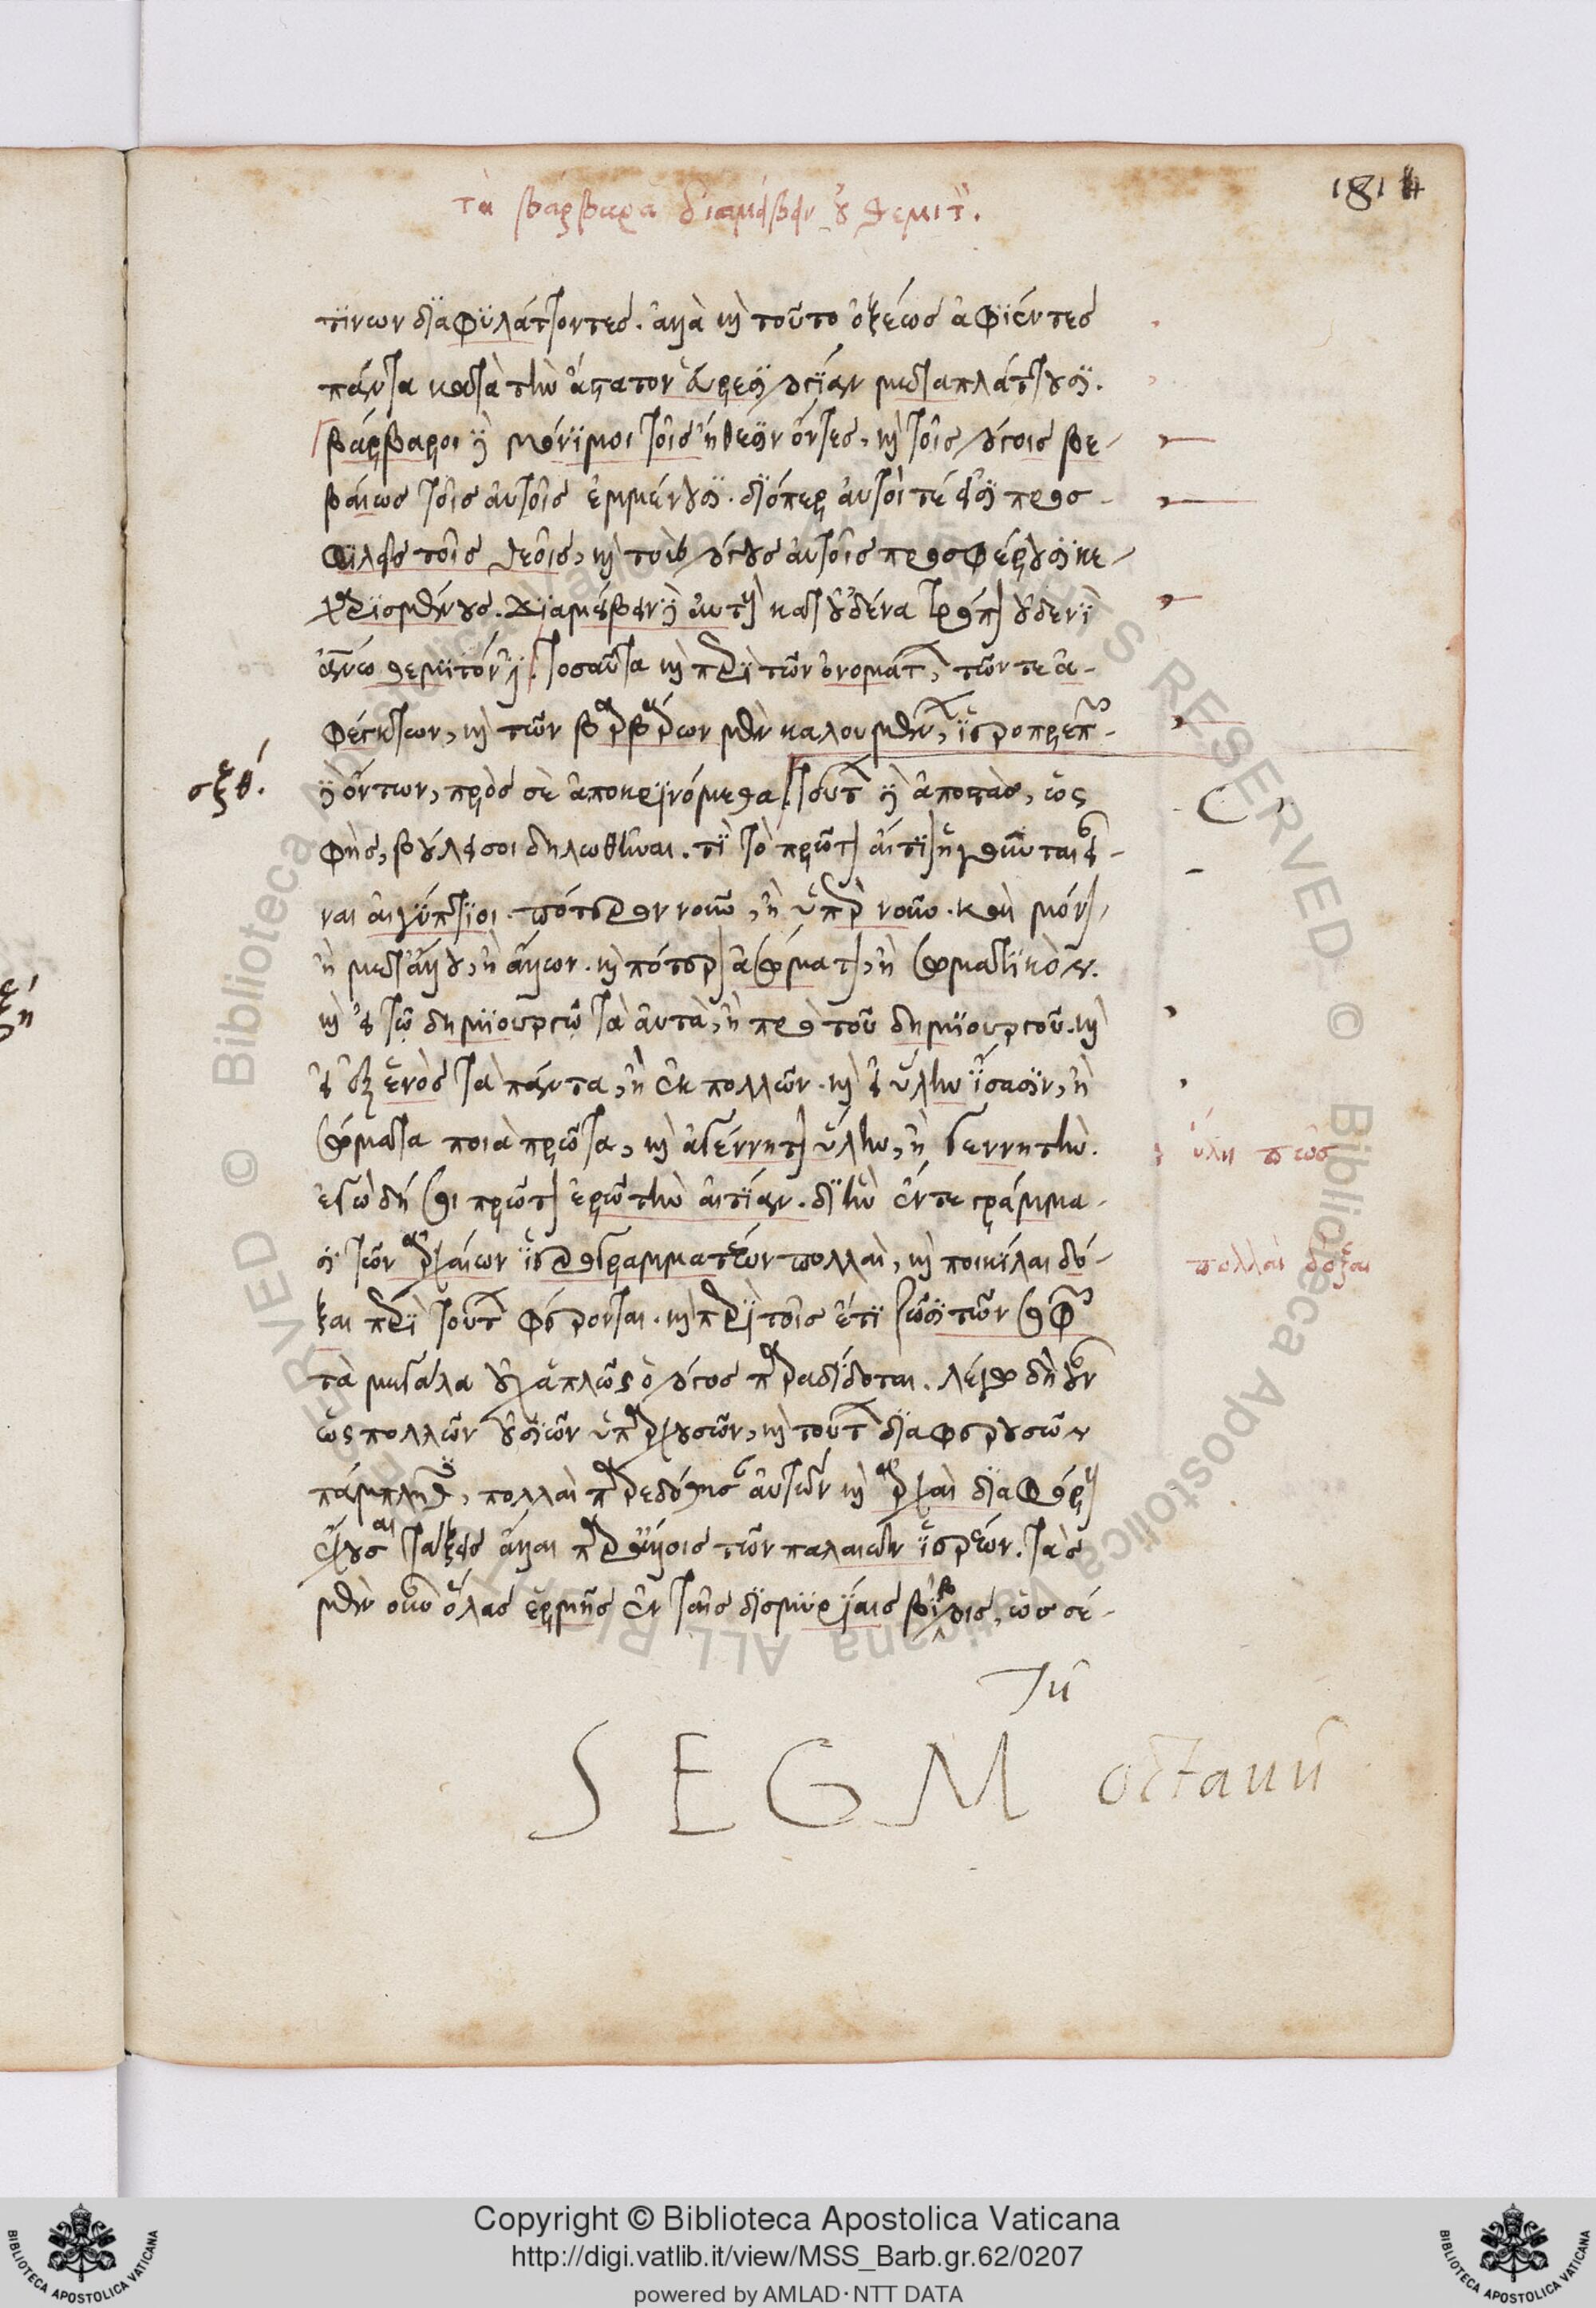 τὰ βάρβαρα διαμείβειν οὐ θεμιτόν.
181
τινων διαφυλάττοντες. ἀλλὰ καὶ τοῦτο ὀξέως ἀφιέντες
πάντα κατὰ τὴν ἄστατον εὑρεσιλογίαν μεταπλάττουσι.
βάρβαροι δὲ μόνιμοι τοῖς ἤθεσιν ὄντες, καὶ τοῖς λόγοις βε-
βαίως τοῖς αὐτοῖς ἐμμένουσι. διόπερ αὐτοί τέ εἰσι προσ-
φιλεῖς τοῖς θεοῖς, καὶ τοὺς λόγους αὐτοῖς προσφέρουσι κε-
χαρισμένους. διαμείβειν δὲ αὐτοὺς κατ' οὐδένα τρόπον οὐδενὶ
ἀνθρώπῳ θεμιτόν ἐστι. τοσαῦτα καὶ περὶ τῶν ὀνομάτων, τῶν τε ἀ-
φθέγκτων, καὶ τῶν βαρβάρων μὲν καλουμένων, ἱεροπρεπῶν
σξθ´.
δὲ ὄντων, πρὸς σὲ ἀποκρινόμεθα. τούτων δὲ ἀποστάς, ὥς
φῂς, βούλει σοι δηλωθῆναι. τί τὸ πρῶτον αἴτιον ἡγοῦνται εἶ-
ναι αἰγύπτιοι. πότερον νοῦν, ἢ ὑπὲρ νοῦν. καὶ μόνον,
ἢ μετ' ἄλλου, ἢ ἄλλων. καὶ πότερον ἀσώματον, ἢ σωματικόν.
καὶ εἰ τῷ δημιουργῷ τὰ αὐτὰ, ἢ πρὸ τοῦ δημιουργοῦ. καὶ
εἰ ἐξ ἑνὸς τὰ πάντα, ἢ ἐκ πολλῶν. καὶ εἰ ὕλην ἴσασιν, ἢ
σώματα ποιὰ πρῶτα, καὶ ἀγέννητον ὕλην, ἢ γεννητήν.
ὕλη πῶς
ἐγὼ δή σοι πρῶτον ἐρῶ τὴν αἰτίαν. δι' ἣν ἔν τε γράμμα-
σι τῶν ἀρχαίων ἱερογραμματέων πολλαὶ, καὶ ποικίλαι δό-
πολλαὶ δόξαι
ξαι περὶ τούτων φέρονται. καὶ παρὰ τοῖς ἔτι ζῶσι τῶν σοφῶν
τὰ μεγάλα οὐχ ἁπλῶς ὁ λόγος παραδίδοται. λέγω δὴ οὖν
ὡς πολλῶν οὐσιῶν ὑπαρχουσῶν, καὶ τούτων διαφερουσῶν
πάμπληθες, πολλαὶ παρεδόθησαν αὐτῶν καὶ ἀρχαὶ διαφόρους
ἔχουσαι τάξεις ἄλλαι παρ' ἄλλοις τῶν παλαιῶν ἱερέων. τὰς
μὲν οὖν ὅλας ἑρμῆς ἐν ταῖς δισμυρίαις βίβλοις, ὡς σέ-
SEGMtū octauū
Copyright © Biblioteca Apostolica Vaticana
http://digi.vatlib.it/view/MSS_Barb.gr.62/0207
powered by AMLAD·NTT DATA